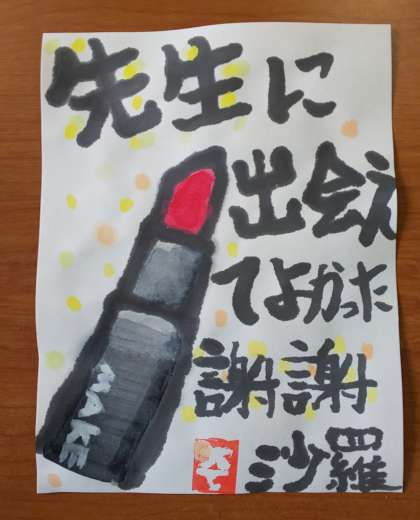 先生に
出会え
てよかった
謝謝
沙羅
MAKE